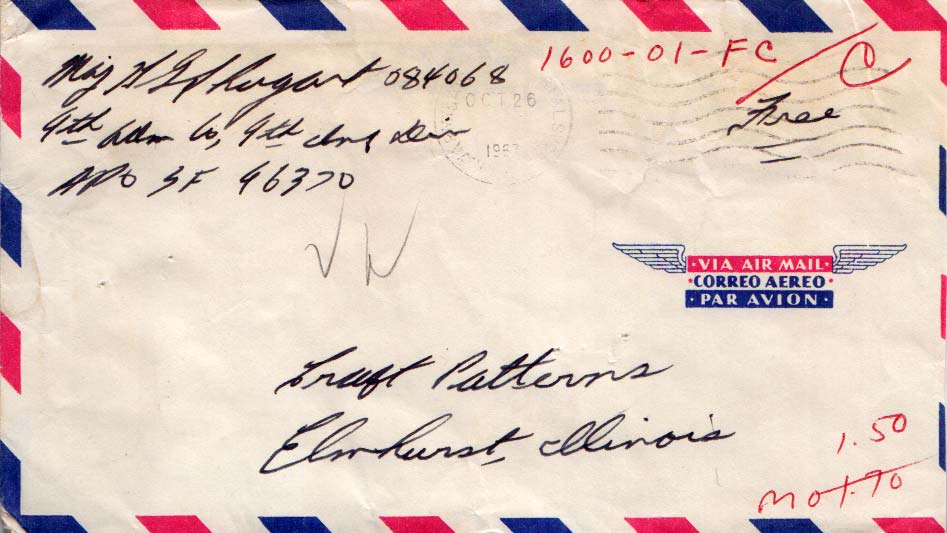 Maj W G Shugart 084068
9th Adm Co, 9th Inf Div
APO SF 96370
OCT 26
196
1600-01-FC / C
Free
VIA AIR MAIL
CORREO AEREO
PAR AVION
Craft Patterns
Elmhurst, Illinois
1.50
MO 1.70